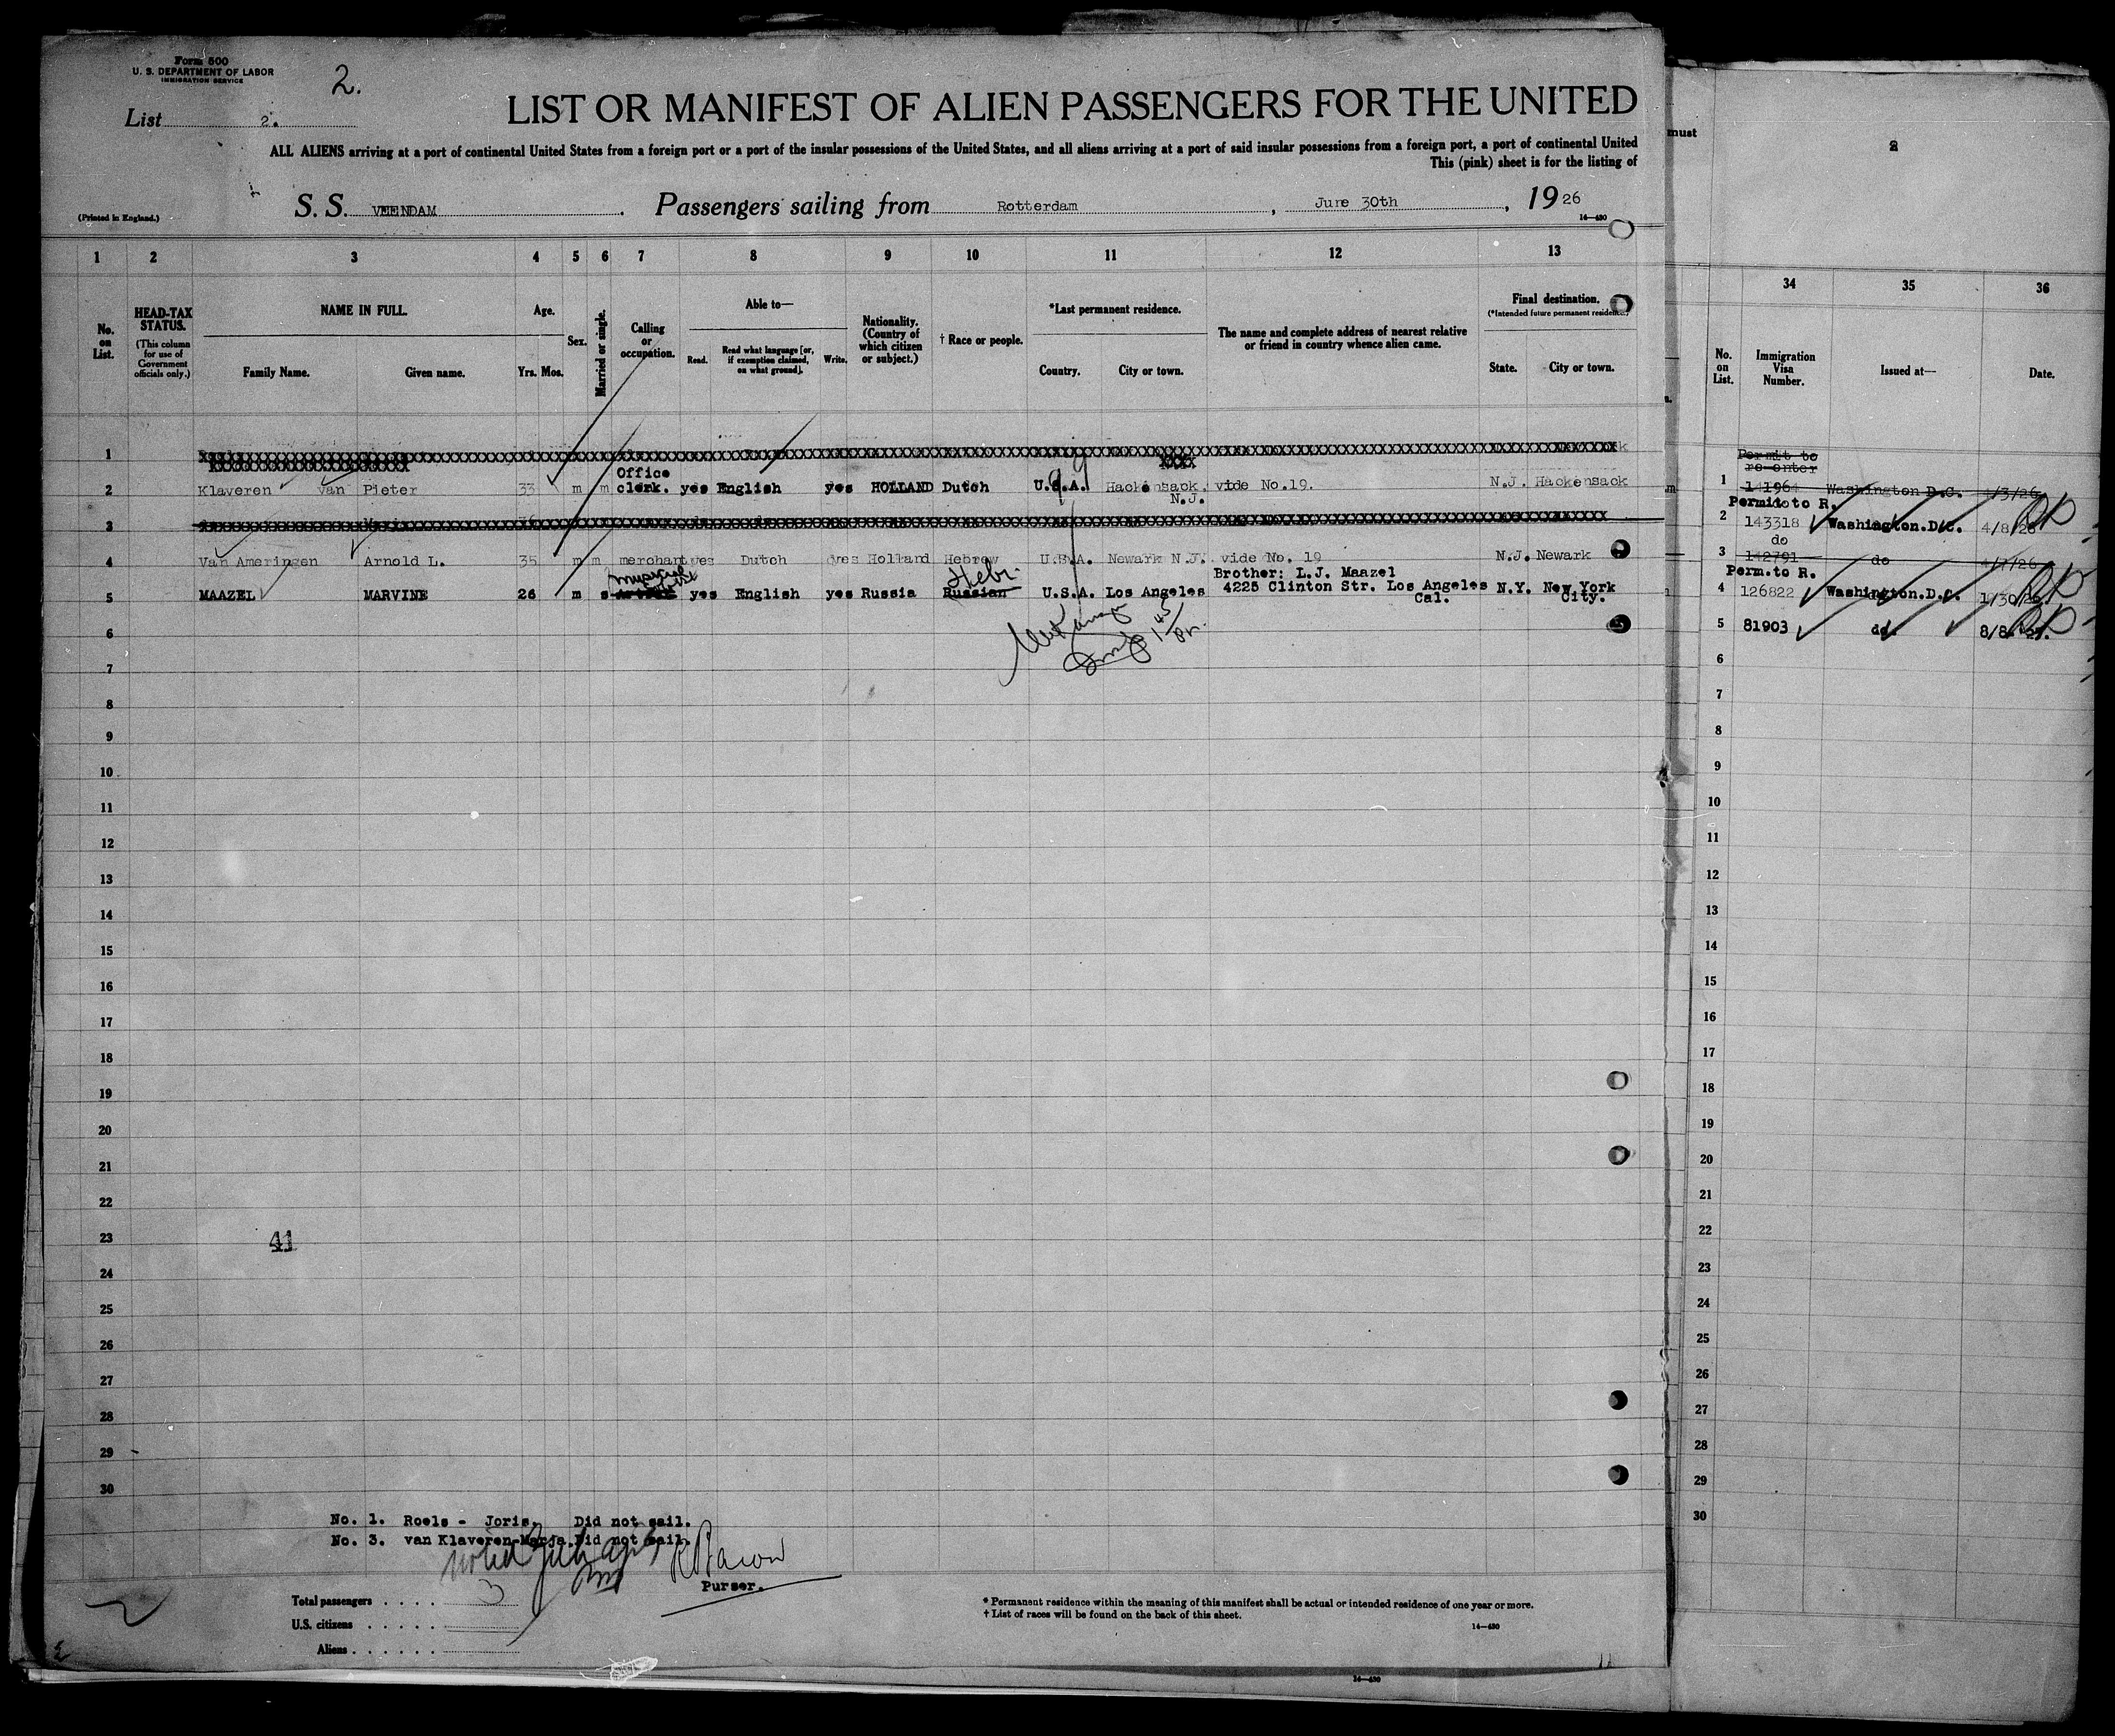 Form 500
U. S. DEPARTMENT OF LABOR
IMMIGRATION SERVICE
2.
List 2.
LIST OR MANIFEST OF ALIEN PASSENGERS FOR THE UNITED
ALL ALIENS arriving at a port of continental United States from a foreign port or a port of the insular possessions of the United States, and all aliens arriving at a port of said insular possessions from a foreign port, a port of continental United
This (pink) sheet is for the listing of
(Printed in England.)
S. S. VEENDAM. Passengers sailing from Rotterdam, June 30th, 1926
14—430
must
2
1 2 3 4 5 6 7 8 9 10 11 12 13
34 35 36
No. on List.
HEAD-TAX STATUS. (This column for use of Government officials only.)
NAME IN FULL.
Family Name. Given name.
Age.
Yrs. Mos.
Sex.
Married or single.
Calling or occupation.
Able to—
Read. Read what language [or, if exemption claimed, on what ground]. Write.
Nationality. (Country of which citizen or subject.)
† Race or people.
*Last permanent residence.
Country. City or town.
The name and complete address of nearest relative or friend in country whence alien came.
Final destination.
(*Intended future permanent residence.)
State. City or town.
No. on List.
Immigration Visa Number.
Issued at—
Date.
1
2 Klaveren van Pieter 33 m m Office clerk. yes English yes HOLLAND Dutch U.S.A. Hackensack. N.J. vide No.19. N.J. Hackensack
3
4 Van Ameringen Arnold L. 35 m m merchant yes Dutch yes Holland Hebrew U.S.A. Newark N.J. vide No. 19 N.J. Newark
5 MAAZEL MARVINE 26 m s musical artist yes English yes Russia Russian Hebr. U.S.A. Los Angeles Brother: L.J. Maazel 4225 Clinton Str. Los Angeles Cal. N.Y. New York City.
6
7
8
9
10
11
12
13
14
15
16
17
18
19
20
21
22
23
24
25
26
27
28
29
30
41
Permit to re-enter
1 141964 Washington D.C. 4/3/26
Permit to R.
2 143318 Washington.D.C. 4/8/26
do
3 142791 do 4/7/26
Perm.to R.
4 126822 Washington.D.C. 1/30/26
5 81903 do.
6
7
8
9
10
11
12
13
14
15
16
17
18
19
20
21
22
23
24
25
26
27
28
29
30
No. 1. Roels - Joris. Did not sail.
No. 3. van Klaveren-Marja.Did not sail.
Purser.
Total passengers 3
U.S. citizens
Aliens
* Permanent residence within the meaning of this manifest shall be actual or intended residence of one year or more.
† List of races will be found on the back of this sheet.
14—430
14—430